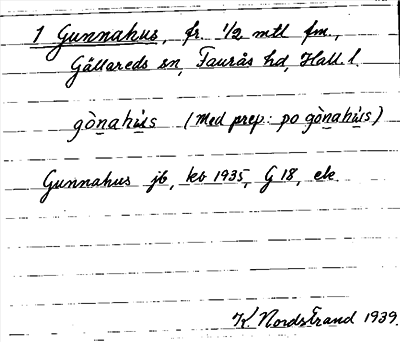 1 Gunnahus, fr. 1/2 mtl fm.,
Gällareds sn, Faurås hd, Hall. l.
gònahùs (Med prep: po gònahùs)
Gunnahus jb, kb 1935, G 18, ek.
K. Nordstrand 1939.